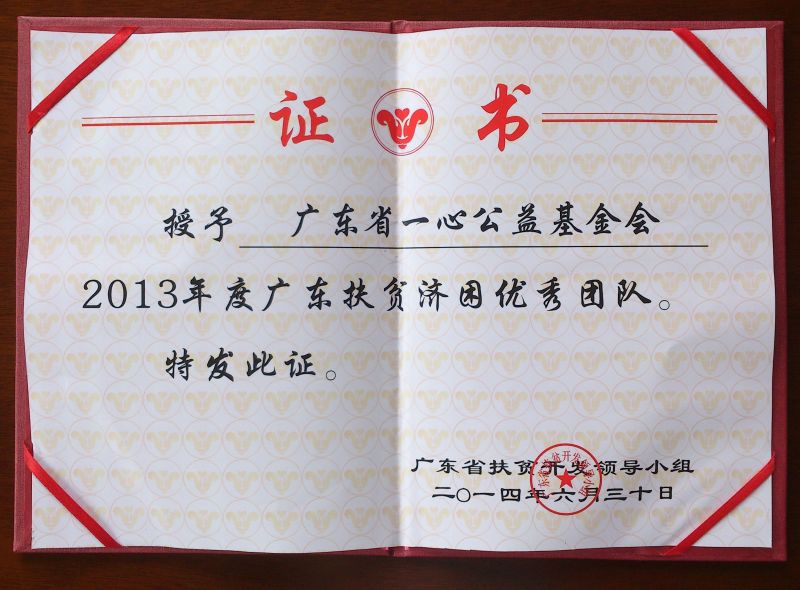 证 书
授予 广东省一心公益基金会
2013年度广东扶贫济困优秀团队。
特发此证。
广东省扶贫开发领导小组
二〇一四年六月三十日
广东省扶贫开发领导小组